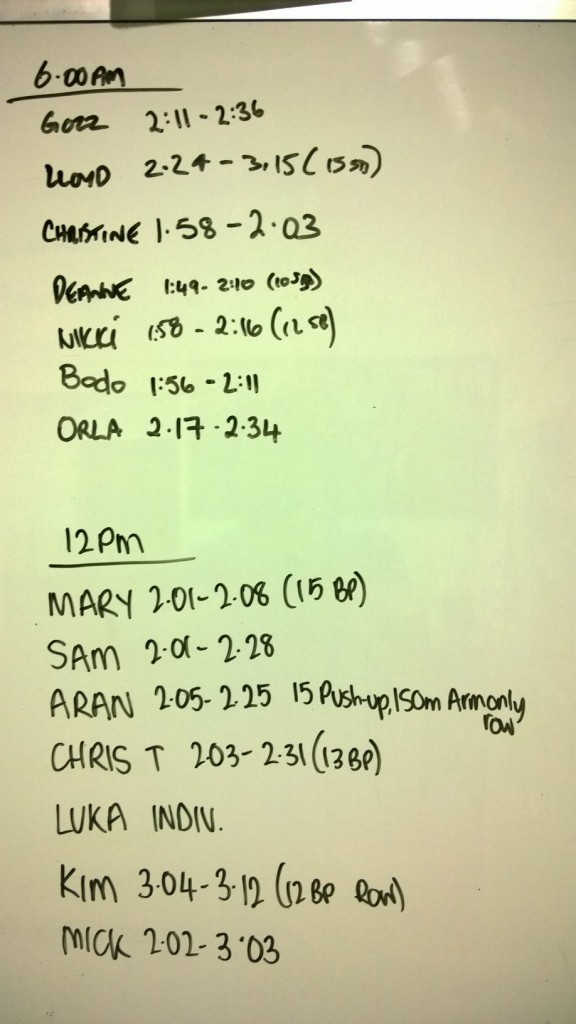 6.00AM
GOZZ 2:11 - 2:36
LLOYD 2.24 - 3.15 (15
CHRISTINE 1.58 - 2.03
DEANNE 1:49 - 2:10
NIKKI 1:58 - 2:16
Bodo 1:56 - 2:11
ORLA 2.17 - 2.34
12PM
MARY 2.01 - 2.08 (15 BP)
SAM 2.01 - 2.28
ARAN 2.05 - 2.25 15 Push-up, 150m Arm only
row
CHRIS T 2.03 - 2.31 (13 BP)
LUKA INDIV.
KIM 3.04 - 3.12 (12 BP ROW)
MICK 2.02 - 3.03